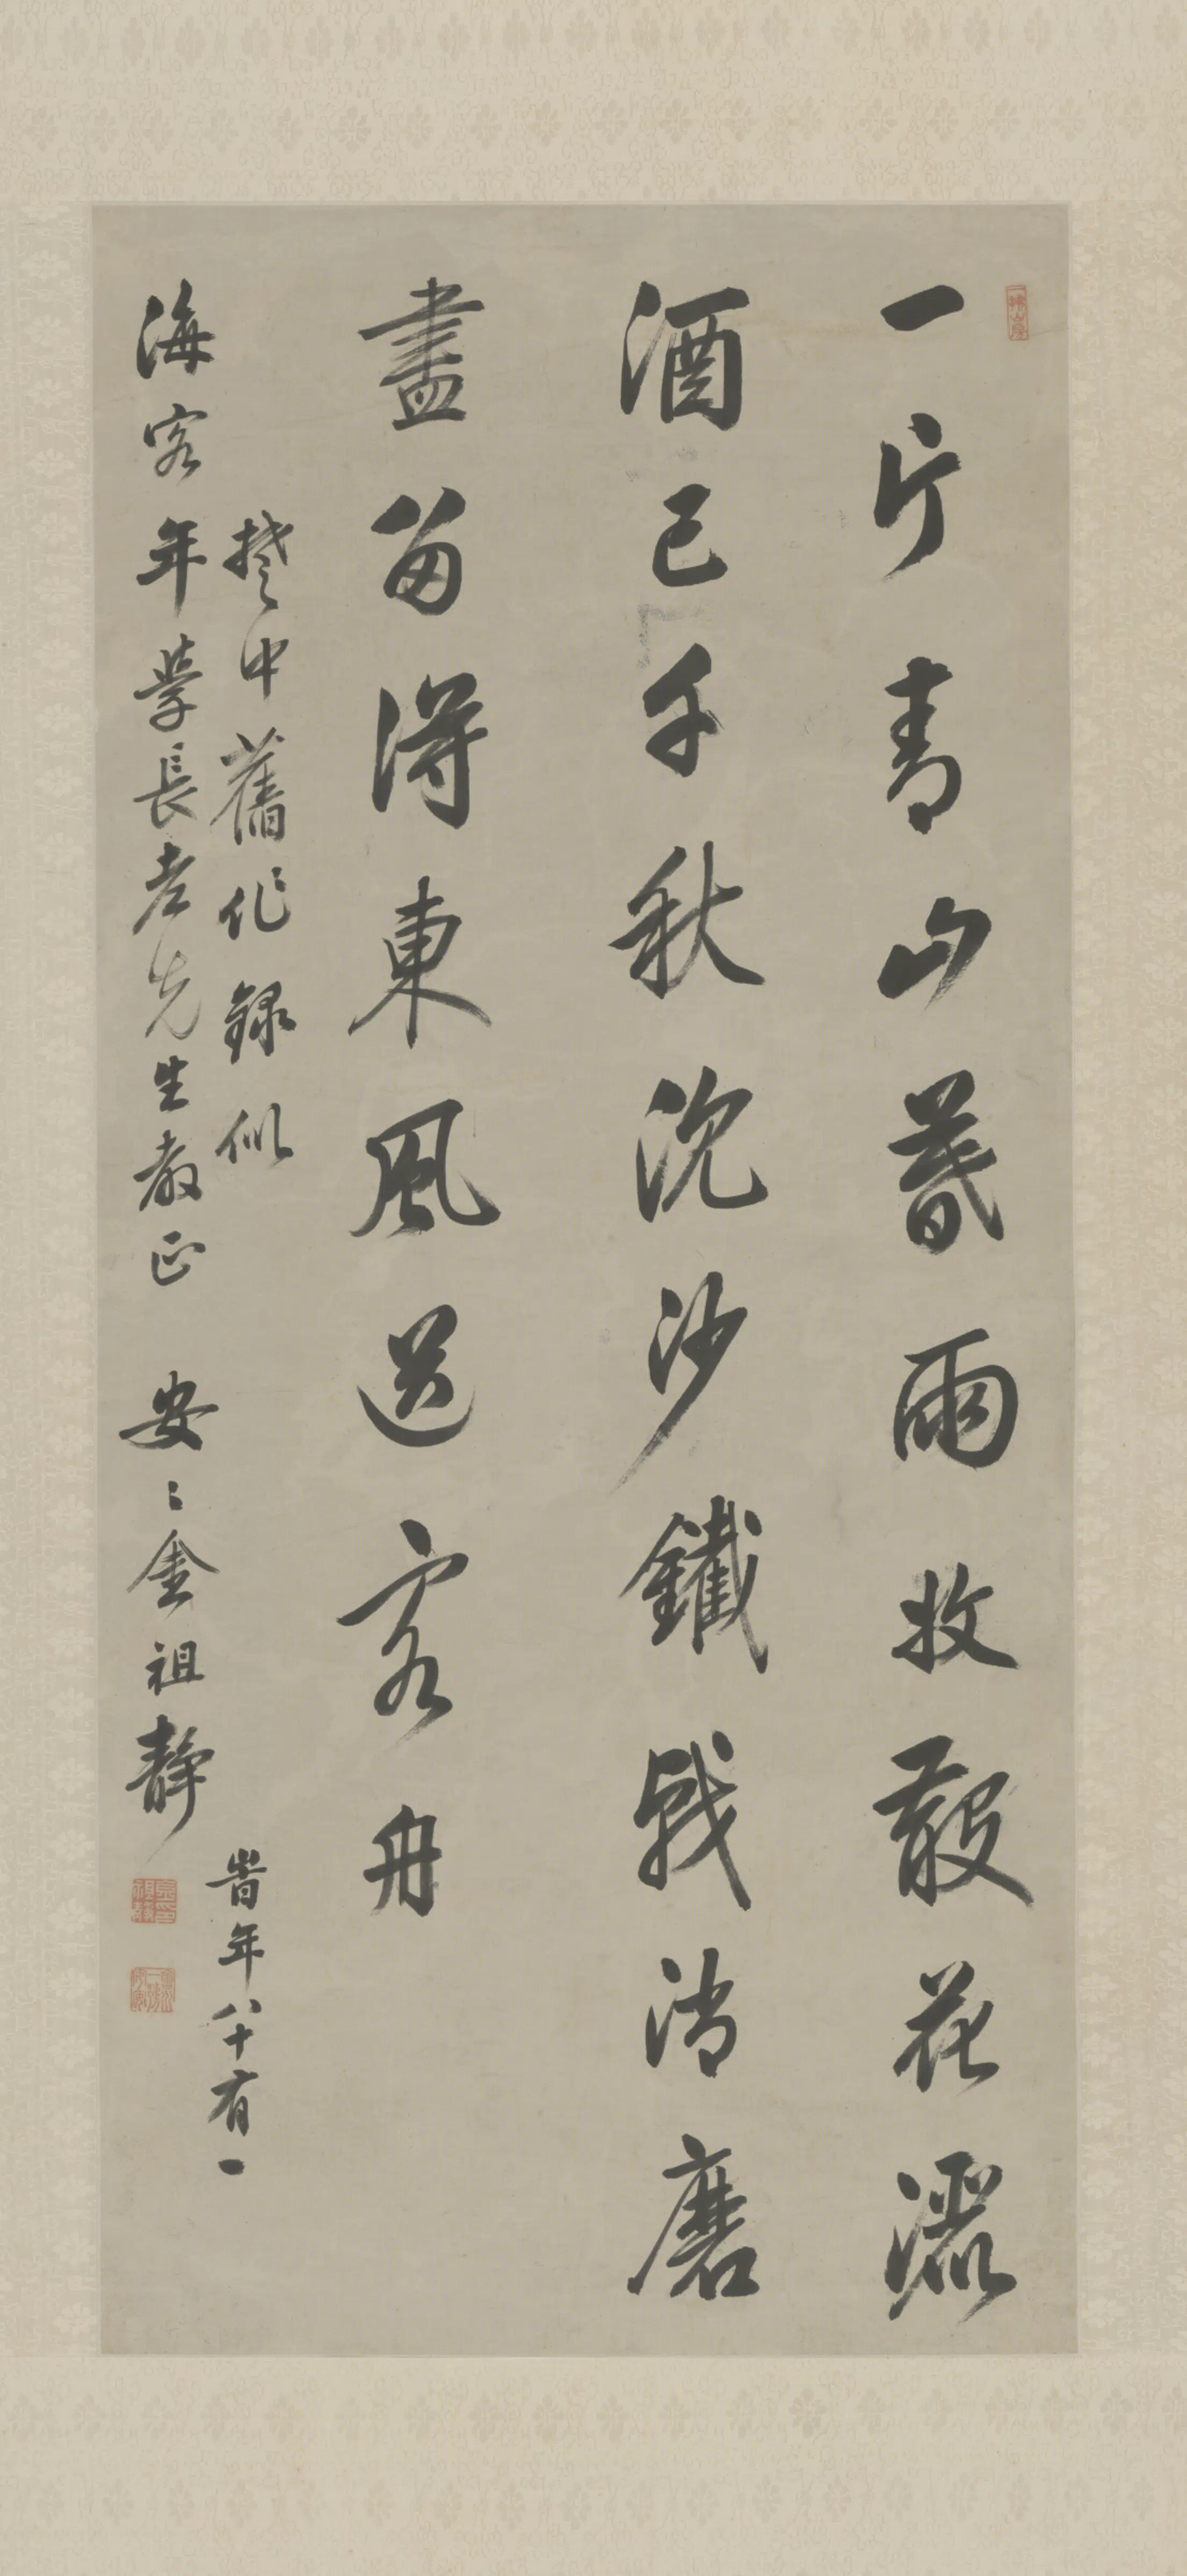 一片青山暮雨收散花灑
酒已千秋沈沙鐵戟消磨
盡留得東風送客舟
楚中舊作錄似
海客年學長老先生教正 安〻金祖靜
時年八十有一